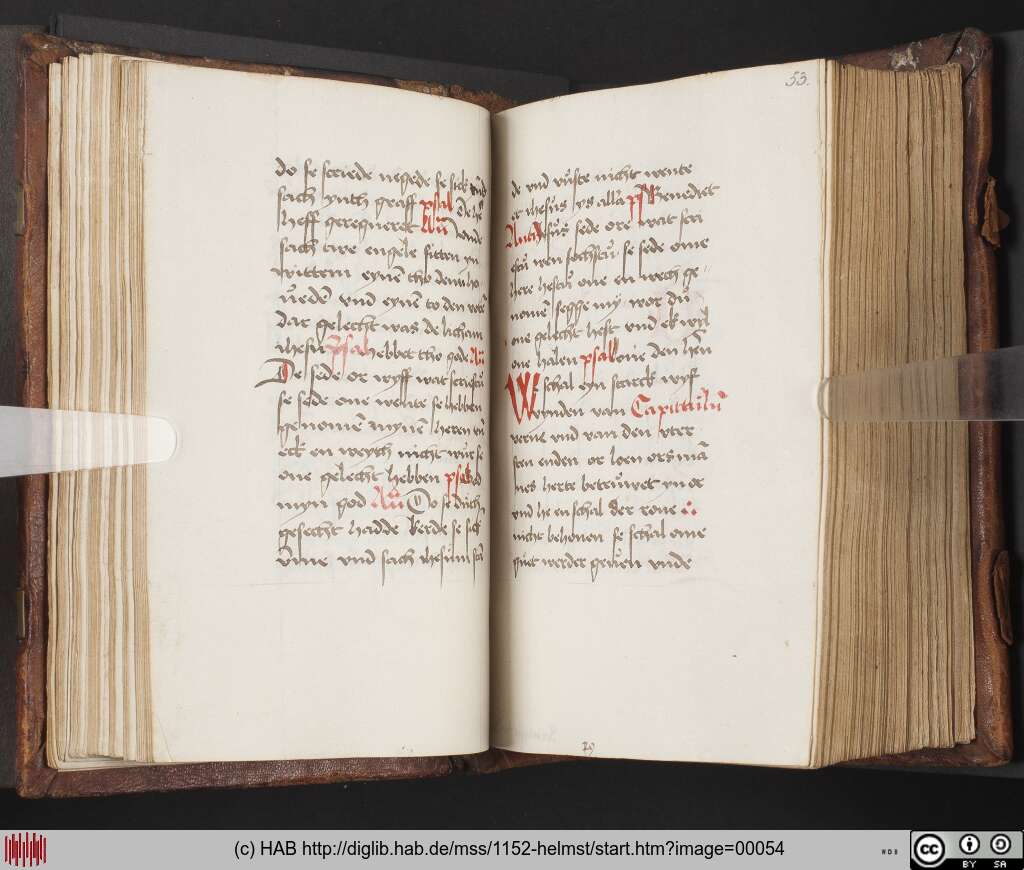 do se scriede negede se sick vnd
sach ynth graff psal De he
heff gerequeret Añ vande
sach twe engele sitten yn
wittem eynē tho dem ho
ueden vnd eynē to den vote
dar gelecht was de licham
ihesu Psal hebbet tho gode Añ
De sede or wyff wat scriestu
se sede one wente se hebben
genomē mynē heren vñ
eck en weyth nicht wur se
one gelecht hebben psal God
myn god Añ Do se duth
gesecht hadde kerde se sick
vme vnd sach ihesum stā
53.
de vnd wuste nicht wente
et ihesus ys alla ps Benedict
Anti Ihesus sede ore wat scri
estu wen sochstu se sede ome
here hestu one en wech ge
nomē segge my wor du
one gelecht hest vnd ek wyl
one halen psal loue den hern
We schal eyn starck wyf
vynden van Capittulū
verne vnd van den vter
sten enden or loen ors mā
nes herte betruwet yn or
vnd he en schal der roue
nicht behouen se schal ome
guet werder geuen vnde
(c) HAB http://diglib.hab.de/mss/1152-helmst/start.htm?image=00054
WDB
cc
BY SA